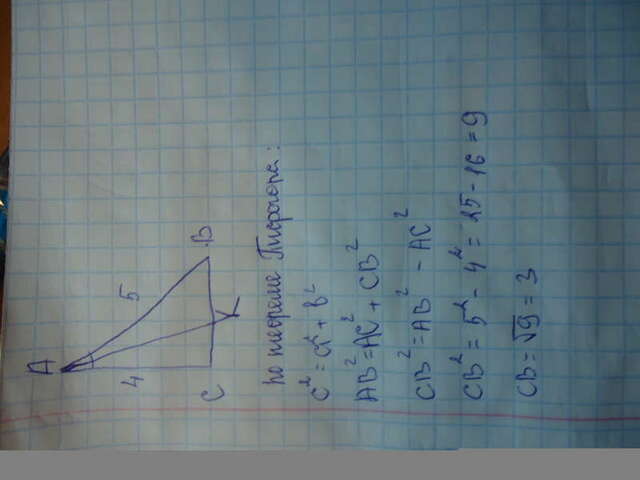 A
5
4
B
C
K
по теореме Пифагора:
c² = a² + b²
AB² = AC² + CB²
CB² = AB² - AC²
CB² = 5² - 4² = 25 - 16 = 9
CB = √9 = 3